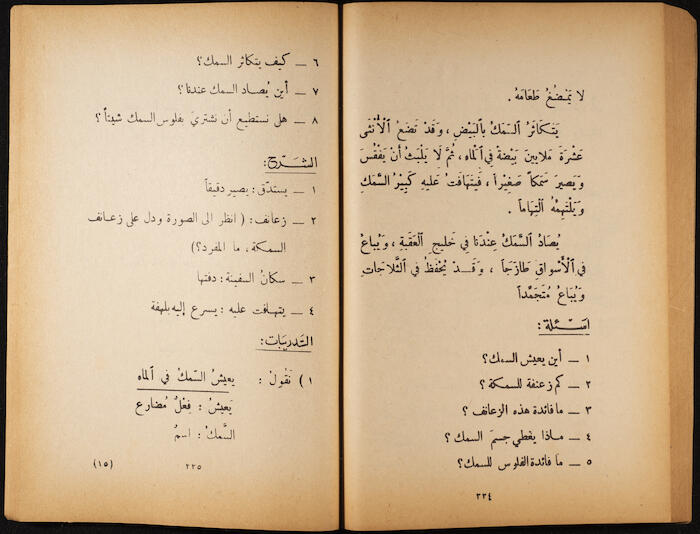 لا يَمْضُغُ طَعَامَهُ .
يَتَكَاثَرُ ٱلسَّمَكُ بِٱلبَيْضِ ، وَقَدْ تَضَعُ ٱلْأُنْثَى
عَشْرَةَ مَلايينَ بَيْضَةٍ فِي ٱلْمَاءِ ، ثُمَّ لَا يَلْبَثُ أَنْ يَفْقُسَ
وَيَصِيرَ سَمَكاً صَغِيْراً ، فَيَتَهَافَتُ عَلَيهِ كَبِيْرُ السَّمَكِ
وَيَلْتَهِمُهُ ٱلْتِهَاماً .
يُصَادُ ٱلسَّمَكُ عِنْدَنَا فِي خَليجِ ٱلعَقَبَةِ ، وَيُبَاعُ
فِي ٱلْأَسْوَاقِ طَازَجاً ، وَقَدْ يُحْفَظُ فِي ٱلثَّلَاجَاتِ
وَيُبَاعُ مُتَجَمِّداً
اسئلة :
١ — أين يعيش السمك ؟
٢ — كم زعنفة للسمكة ؟
٣ — ما فائدة هذه الزعانف ؟
٤ — ماذا يغطي جسمَ السمك ؟
٥ — ما فائدة الفلوس للسمك ؟
٢٢٤
٦ — كيف يتكاثر السمك ؟
٧ — أين يُصاد السمك عندنا ؟
٨ — هل نستطيع أن نشتريَ بفلوس السمك شيئاً ؟
الشرح :
١ — يستدق : يصير دقيقاً
٢ — زعانف : ( انظر الى الصورة ودل على زعانف
السمكة ، ما المفرد؟ )
٣ — سكانُ السفينة : دفتها
٤ — يتهافت عليه : يسرع إليه بلهفة
التدريبات :
١ ) نَقُولُ : يعيشُ السمكُ في ٱلماء
يَعيشُ : فِعْلٌ مُضارع
السَّمكُ : اسمٌ
٢٢٥
(١٥)